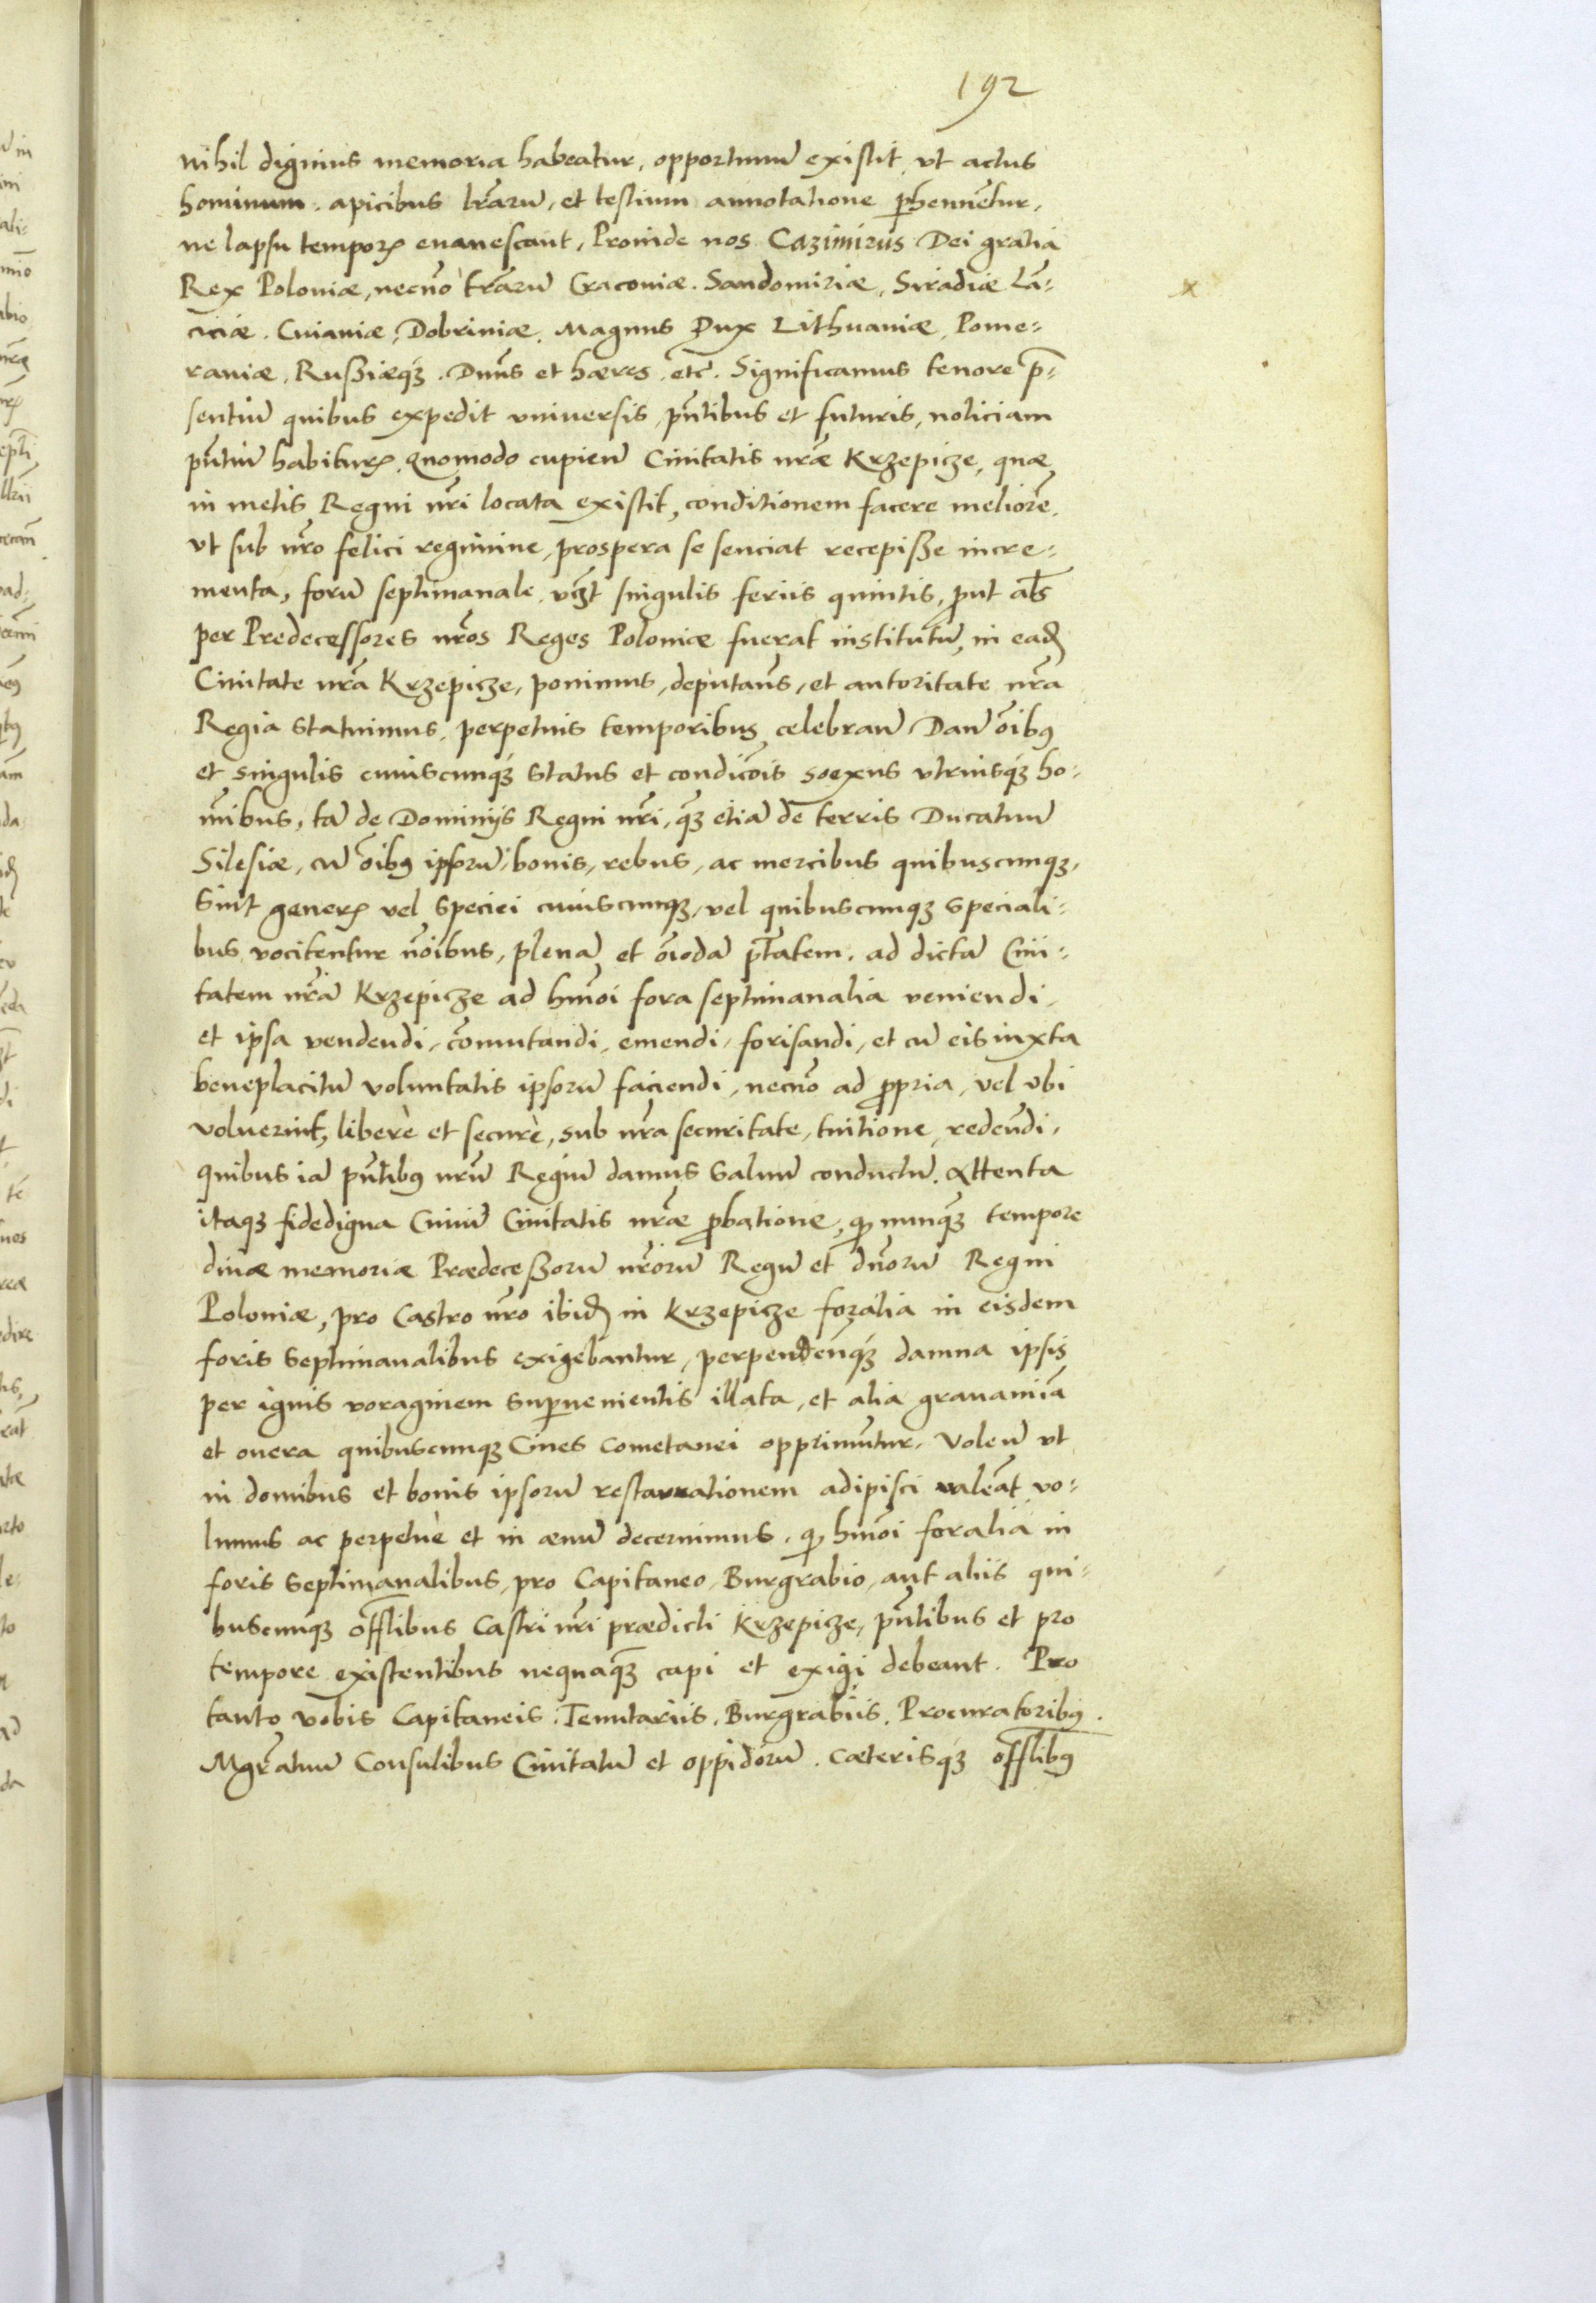 192
nihil dignius memoria habeatur, opportunū existit, vt actus
hominum. apicibus lr̃arū, et testium annotatione ꝑhennẽtur,
ne lapsu temporꝝ euanescant, Proinde nos Cazimirus Dei gratia
Rex Poloniæ, necnõ tr̃arū Cracoviæ. Sandomiriæ, Siradiæ Lã-
ciciæ. Cuiaviæ, Dobriniæ. Magnus Dux Lithuaniæ, Pome-
raniæ, Rußiæqꝫ. Dnũs et hæres. etc̃. Significamus tenore p̃-
sentiū quibus expedit vniversis, pñtibus et futuris, noticiam
pñtiū habiturꝝ, Quomodo cupieñ Civitatis nr̃æ Krzepicze, quæ
in metis Regni nr̃i locata existit, conditionem facere meliorẽ,
vt sub nr̃o felici regimine, prospera se senciat recepiße incre-
menta, forū septimanale, vꝫt singulis feriis quintis, ꝓut als̃
per Predecessores nr̃os Reges Poloniæ fuerat institutū, in eaḋ
Civitate nr̃a Krzepicze, ponimus, deputaũs, et autoritate nr̃a
Regia statuimus, perpetuis temporibus celebrañ, Dañ oĩbꝰ
et singulis cuiuscunqꝫ status et condicõis soexus vtriusqꝫ ho-
mĩbus, tã de Dominijs Regni nr̃i, qꝫ etiã de terris Ducatuū
Silesiæ, cū oĩbꝰ ipsorū, bonis, rebus, ac mercibus quibuscunqꝫ,
Sint generꝝ vel speciei cuiuscunqꝫ, vel quibuscunqꝫ speciali-
bus vocitentur noĩbus, plenã et oĩodã pt̃atem. ad dictã Civi-
tatem nr̃ã Krzepicze ad hmõi fora septimanalia veniendi,
et ipsa vendendi, cõmutandi, emendi, forisandi, et cū eis iuxta
beneplacitū voluntatis ipsorū faciendi, necnõ ad ꝓpria, vel vbi
voluerint, liberè et securè, sub nr̃a securitate, tuitione, redeũdi,
quibus iã pñtibꝰ nr̃ū Regiū damus Salvū conductū. Attenta
itaqꝫ fidedigna Civiū Civitatis nr̃æ ꝓbatione, qꝫ nunqꝫ tempore
divæ memoriæ Prædeceßorū nr̃orū Regū et dñorū Regni
Poloniæ, pro Castro nr̃o ibiḋ in Krzepicze foralia in eisdem
foris septimanalibus exigebantur, perpendeñqꝫ damna ipsis
per ignis voraginem supvenientis illata, et alia gravamiã
et onera quibuscunqꝫ Cives cometanei opprimũtur. Voleñ vt
in domibus et bonis ipsorū restaurationem adipisci valeãt, vo-
lumus ac perpetuè et in ævū decernimus, qꝫ hmõi foralia in
foris septimanalibus, pro Capitaneo, Burgrabio, aut aliis qui-
buscunqꝫ offĩlibus Castri nr̃i prædicti Krzepicze, pñtibus et pro
tempore existentibus nequaqꝫ capi et exigi debeant. Pro
tanto vobis Capitaneis. Tenutariis. Burgrabiis. Procuratoribꝰ.
Mgr̃atuū Consulibus Civitatū et oppidorū. cæterisqꝫ offĩlibꝰ